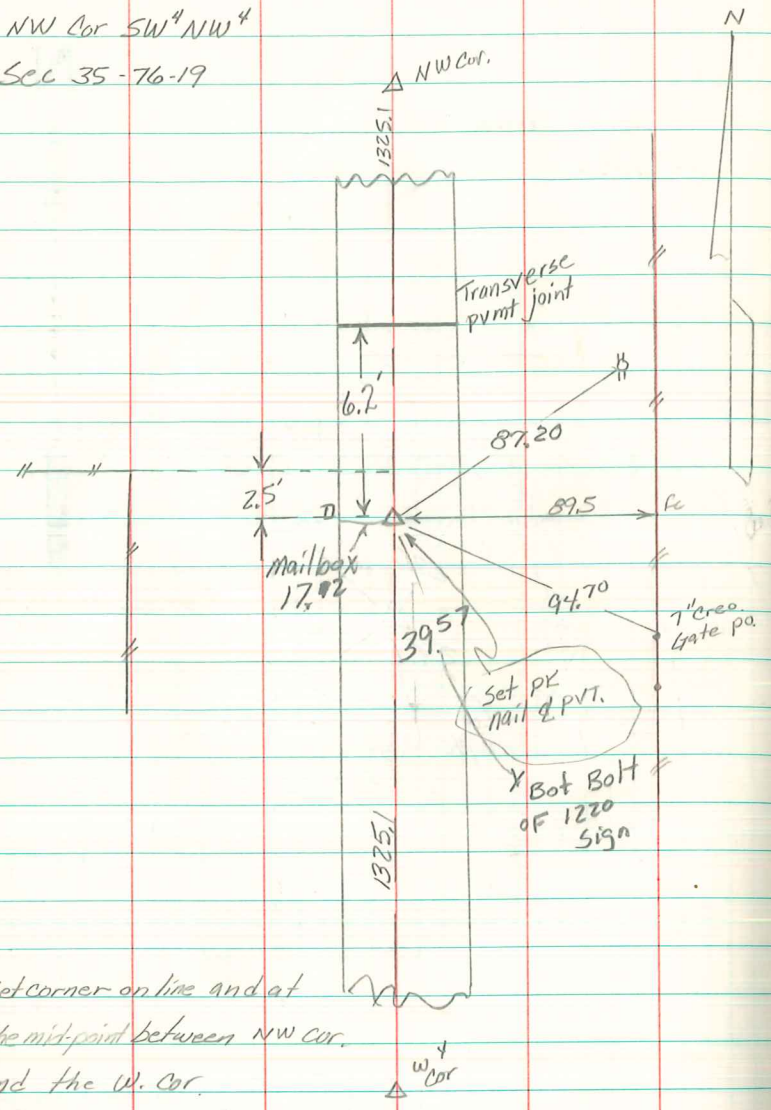 NW Cor SW⁴NW⁴
Sec 35-76-19
N
NW Cor.
1325.1
Transverse
pvmt joint
6.2'
87.20
2.5'
89.5
fc
mailbox
17.92
94.70
7" Creo.
Gate po.
39.57
Set PK
nail & PVT.
Bot Bolt
OF 1220
Sign
1325.1
et corner on line and at
he mid-point between NW cor.
nd the W. Cor.
W⁴
Cor